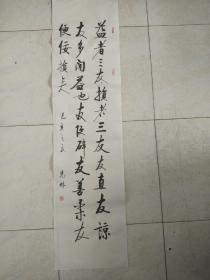 益者三友损者三友友直友谅
友多闻益也友便辟友善柔友
便佞损矣
己亥之夏